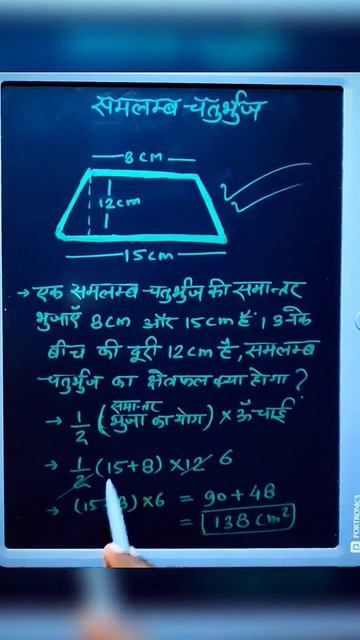 समलम्ब चतुर्भुज
8cm
12cm
15cm
→ एक समलम्ब चतुर्भुज की समान्तर
भुजाएँ 8cm और 15cm हैं। उनके
बीच की दूरी 12cm है, समलम्ब
चतुर्भुज का क्षेत्रफल क्या होगा?
→ 1/2 (समान्तर भुजा का योग) × ऊँचाई
→ 1/2 (15+8) × 12 6
→ (15+8) × 6 = 90 + 48
= 138 cm²
PORTRONICS